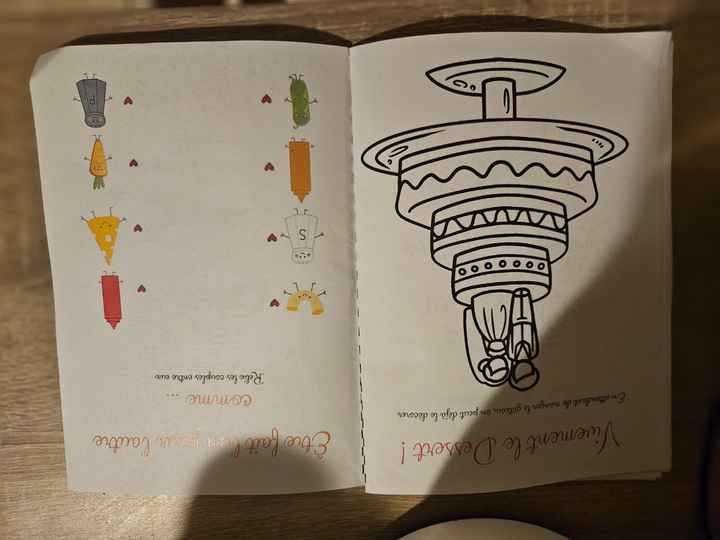 Vivement le Dessert !
En attendant de manger le gâteau, on peut déjà le décorer.
Être fait l'un pour l'autre
comme ...
Relie les couples entre eux
S
P